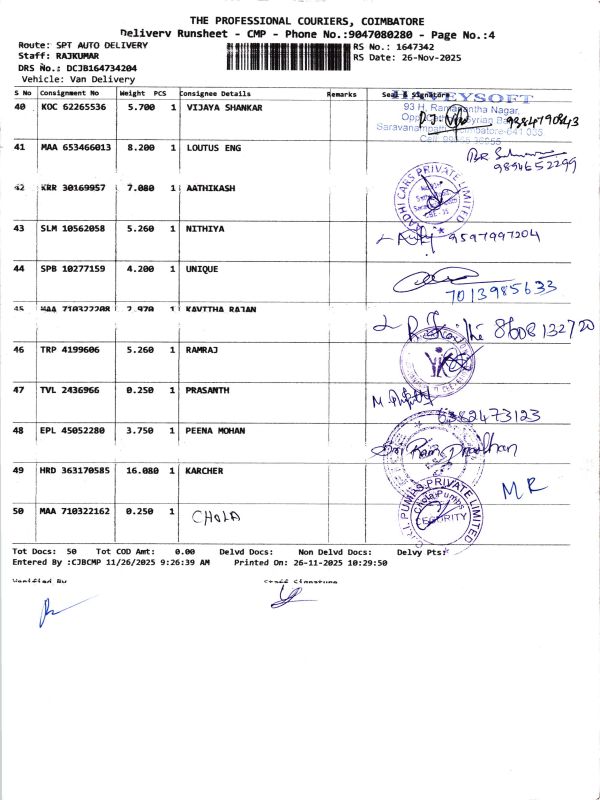 THE PROFESSIONAL COURIERS, COIMBATORE
Delivery Runsheet - CMP - Phone No.:9047080280 - Page No.:4
Route: SPT AUTO DELIVERY RS No.: 1647342
Staff: RAJKUMAR RS Date: 26-Nov-2025
DRS No.: DCJB164734204
Vehicle: Van Delivery
S No Consignment No Weight PCS Consignee Details Remarks Seal & Signature
40 KOC 62265536 5.700 1 VIJAYA SHANKAR
93 H, Ramanantha Nagar,
9384790843
41 MAA 653466013 8.200 1 LOUTUS ENG
9894652299
42 KRR 30169957 7.080 1 AATHIKASH
AADHI CARS PRIVATE LIMITED
43 SLM 10562058 5.260 1 NITHIYA
9597997204
44 SPB 10277159 4.200 1 UNIQUE
7013985633
45 MAA 710322208 2.970 1 KAVITHA RAJAN
8608132720
46 TRP 4199606 5.260 1 RAMRAJ
47 TVL 2436966 0.250 1 PRASANTH
6382473123
48 EPL 45052280 3.750 1 PEENA MOHAN
49 HRD 363170585 16.080 1 KARCHER
MR
50 MAA 710322162 0.250 1 CHOLA
PUMPS PRIVATE LIMITED
Chola Pumps
SECURITY
Tot Docs: 50 Tot COD Amt: 0.00 Delvd Docs: Non Delvd Docs: Delvy Pts:
Entered By :CJBCMP 11/26/2025 9:26:39 AM Printed On: 26-11-2025 10:29:50
Verified By Staff Signature